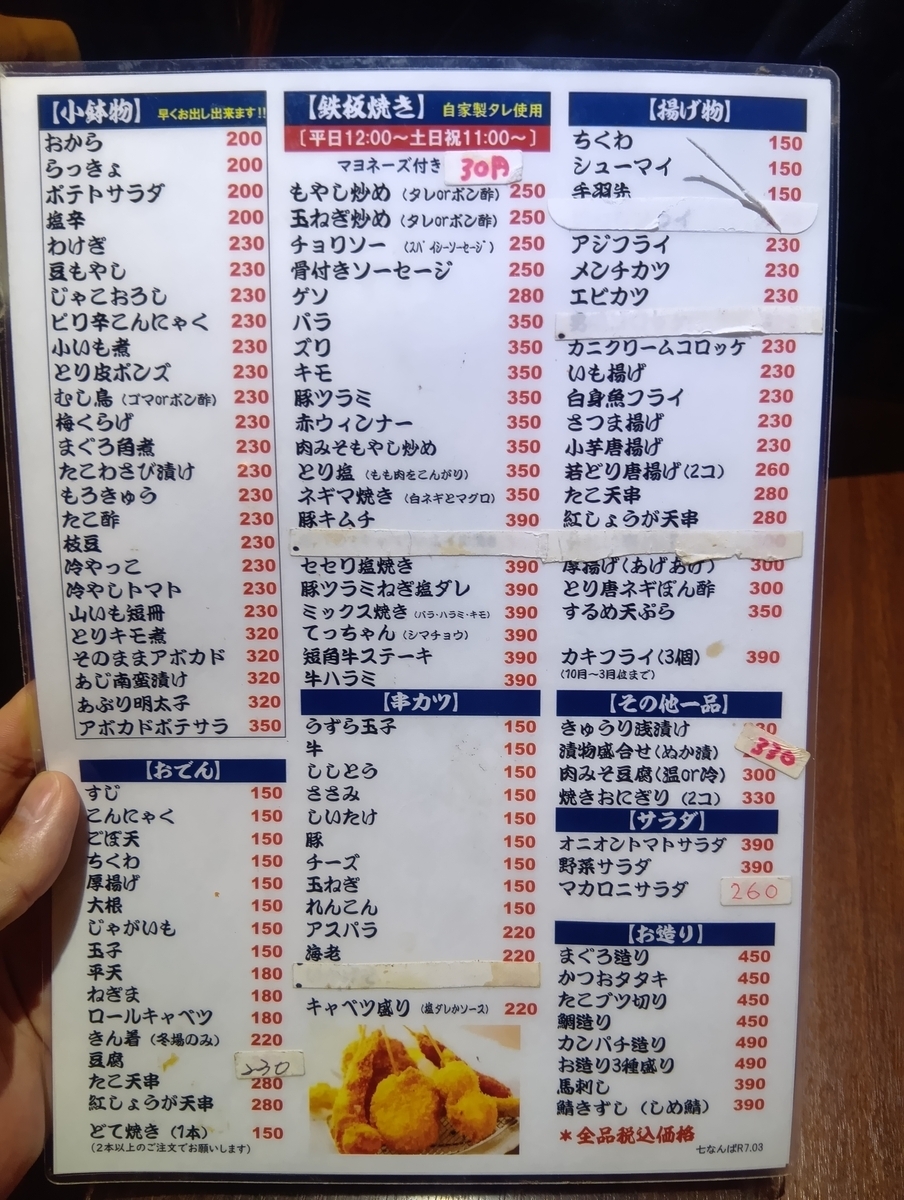 【小鉢物】 早くお出し出来ます!!
おから 200
らっきょ 200
ポテトサラダ 200
塩辛 200
わけぎ 230
豆もやし 230
じゃこおろし 230
ピリ辛こんにゃく 230
小いも煮 230
とり皮ポンズ 230
むし鳥（ゴマorポン酢） 230
梅くらげ 230
まぐろ角煮 230
たこわさび漬け 230
もろきゅう 230
たこ酢 230
枝豆 230
冷やっこ 230
冷やしトマト 230
山いも短冊 230
とりキモ煮 320
そのままアボカド 320
あじ南蛮漬け 320
あぶり明太子 320
アボカドポテサラ 350
【おでん】
すじ 150
こんにゃく 150
ごぼ天 150
ちくわ 150
厚揚げ 150
大根 150
じゃがいも 150
玉子 150
平天 180
ねぎま 180
ロールキャベツ 180
きん着（冬場のみ） 220
豆腐 230
たこ天串 280
紅しょうが天串 280
どて焼き（1本） 150
（2本以上のご注文でお願いします）
【鉄板焼き】 自家製タレ使用
〔平日12:00～土日祝11:00～〕
マヨネーズ付き 30円
もやし炒め（タレorポン酢） 250
玉ねぎ炒め（タレorポン酢） 250
チョリソー（スパイシーソーセージ） 250
骨付きソーセージ 250
ゲソ 280
バラ 350
ズリ 350
キモ 350
豚ツラミ 350
赤ウィンナー 350
肉みそもやし炒め 350
とり塩（もも肉をこんがり） 350
ネギマ焼き（白ネギとマグロ） 350
豚キムチ 390
セセリ塩焼き 390
豚ツラミねぎ塩ダレ 390
ミックス焼き（バラ・ハラミ・キモ） 390
てっちゃん（シマチョウ） 390
短角牛ステーキ 390
牛ハラミ 390
【串カツ】
うずら玉子 150
牛 150
ししとう 150
ささみ 150
しいたけ 150
豚 150
チーズ 150
玉ねぎ 150
れんこん 150
アスパラ 220
海老 220
キャベツ盛り（塩ダレかソース） 220
【揚げ物】
ちくわ 150
シューマイ 150
手羽先 150
アジフライ 230
メンチカツ 230
エビカツ 230
カニクリームコロッケ 230
いも揚げ 230
白身魚フライ 230
さつま揚げ 230
小芋唐揚げ 230
若どり唐揚げ（2コ） 260
たこ天串 280
紅しょうが天串 280
厚揚げ（あげあげ） 300
とり唐ネギぽん酢 300
するめ天ぷら 350
カキフライ（3個） 390
（10月～3月位まで）
【その他一品】
きゅうり浅漬け
漬物盛合せ（ぬか漬） 330
肉みそ豆腐（温or冷） 300
焼きおにぎり（2コ） 330
【サラダ】
オニオントマトサラダ 390
野菜サラダ 390
マカロニサラダ 260
【お造り】
まぐろ造り 450
かつおタタキ 450
たこブツ切り 450
鯛造り 450
カンパチ造り 490
お造り3種盛り 490
馬刺し 390
鯖きずし（しめ鯖） 390
＊全品税込価格
七なんばR7.03